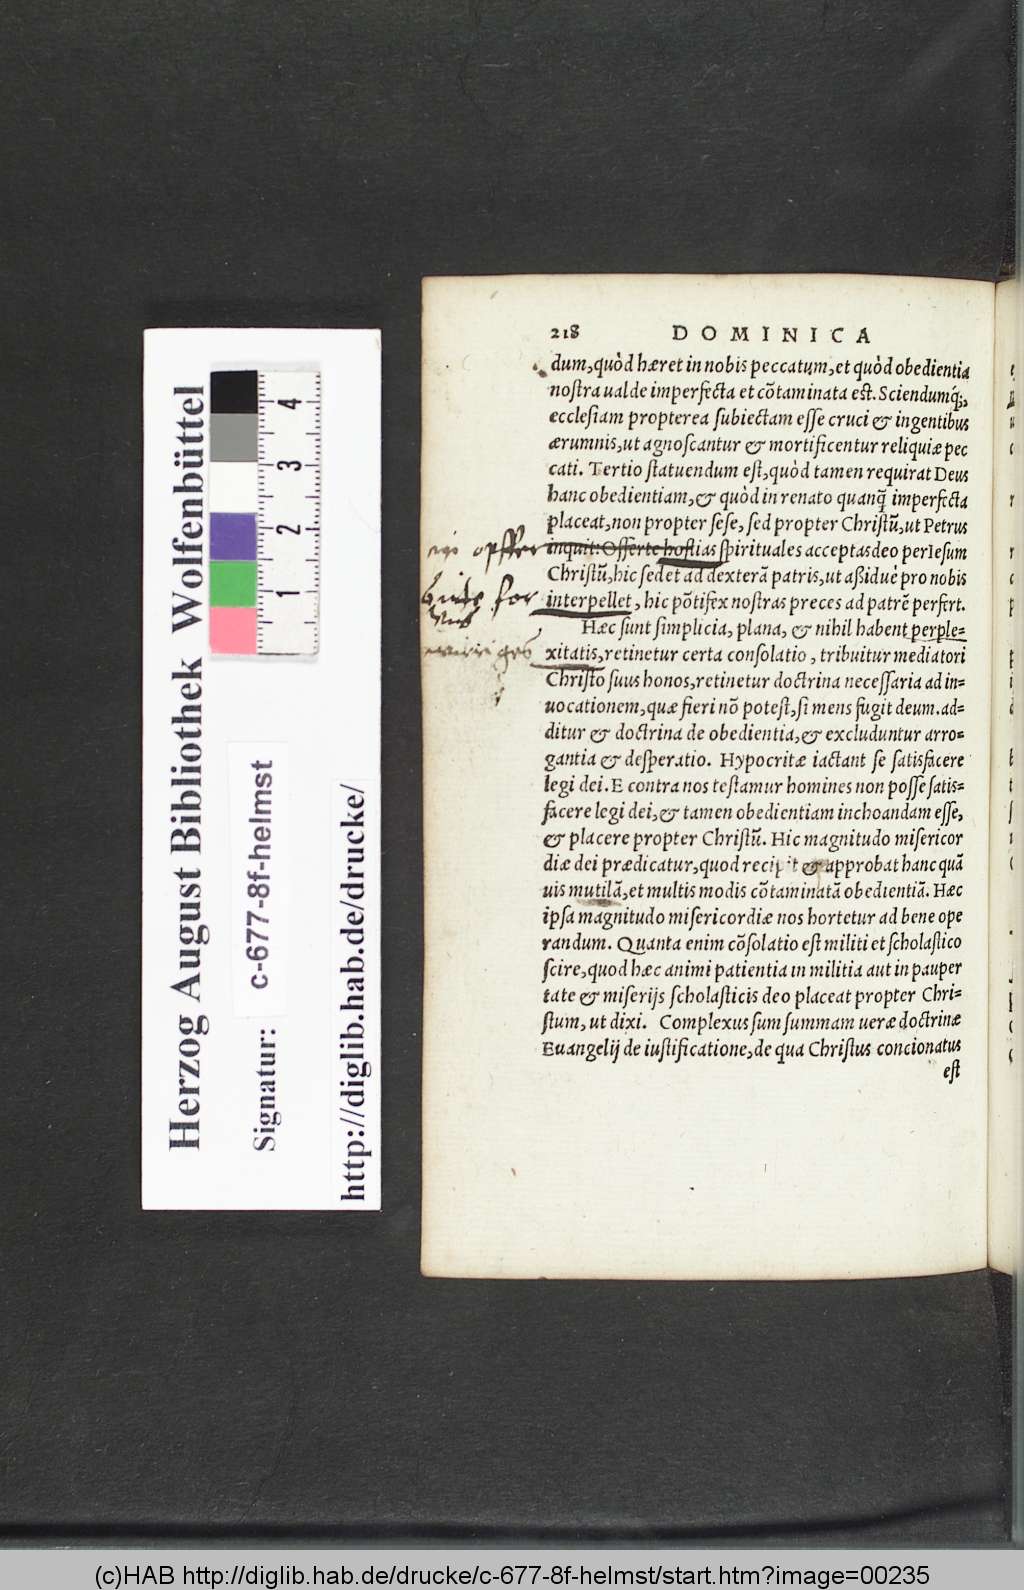 218 DOMINICA
dum, quòd hæret in nobis peccatum, et quòd obedientia
nostra ualde imperfecta et cõtaminata est. Sciendumq́;,
ecclesiam propterea subiectam esse cruci & ingentibus
ærumnis, ut agnoscantur & mortificentur reliquiæ pec
cati. Tertio statuendum est, quòd tamen requirat Deus
hanc obedientiam, & quòd in renato quanq̃ imperfecta
placeat, non propter sese, sed propter Christũ, ut Petrus
inquit: Offerte hostias spirituales acceptas deo per Iesum
Christũ, hic sedet ad dexterã patris, ut aßiduè pro nobis
interpellet, hic põtifex nostras preces ad patrẽ perfert.
Hæc sunt simplicia, plana, & nihil habent perple=
xitatis, retinetur certa consolatio, tribuitur mediatori
Christo suus honos, retinetur doctrina necessaria ad in=
uocationem, quæ fieri nõ potest, si mens fugit deum. ad=
ditur & doctrina de obedientia, & excluduntur arro=
gantia & desperatio. Hypocritæ iactant se satisfacere
legi dei. E contra nos testamur homines non posse satis=
facere legi dei, & tamen obedientiam inchoandam esse,
& placere propter Christũ. Hic magnitudo misericor
diæ dei prædicatur, quod recipit & approbat hanc quã
uis mutilã, et multis modis cõtaminatã obedientiã. Hæc
ipsa magnitudo misericordiæ nos hortetur ad bene ope
randum. Quanta enim cõsolatio est militi et scholastico
scire, quod hæc animi patientia in militia aut in pauper
tate & miserijs scholasticis deo placeat propter Chri=
stum, ut dixi. Complexus sum summam ueræ doctrinæ
Euangelij de iustificatione, de qua Christus concionatus
est
opffer
for
Herzog August Bibliothek Wolfenbüttel
Signatur: c-677-8f-helmst
http://diglib.hab.de/drucke/
1 2 3 4
(c)HAB http://diglib.hab.de/drucke/c-677-8f-helmst/start.htm?image=00235